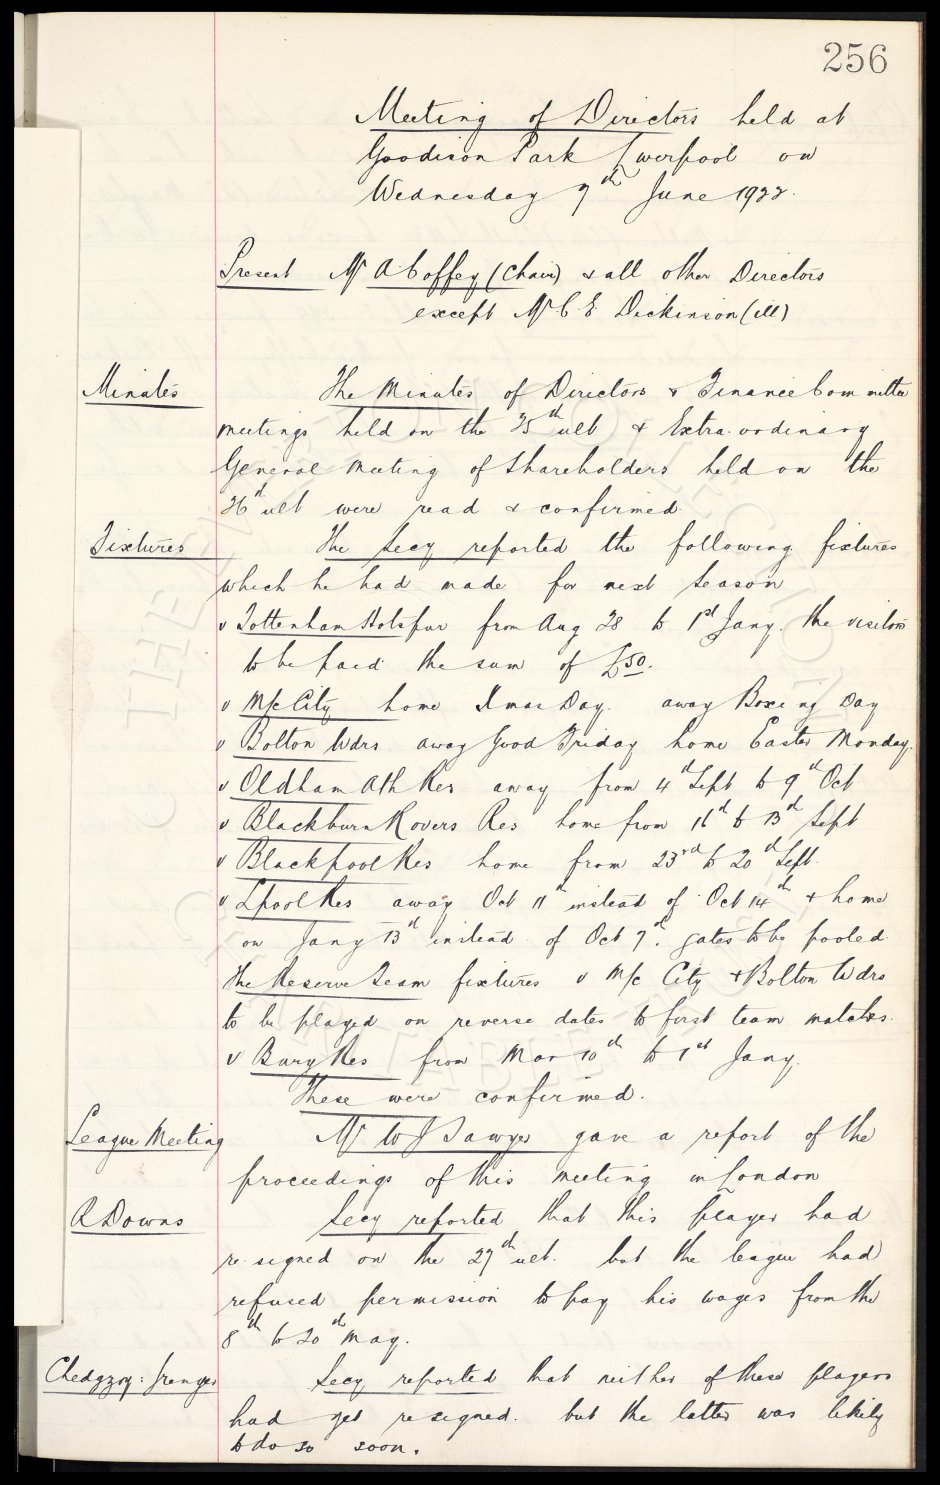 256
Meeting of Directors held at
Goodison Park Liverpool on
Wednesday 7th June 1922.
Present Mr A. Coffey (Chair) & all other Directors
except Mr C. E. Dickinson (ill)
Minutes The Minutes of Directors & Finance Committee
meetings held on the 25th ult & Extra-ordinary
General Meeting of Shareholders held on the
26th ult were read & confirmed.
Fixtures The Secy reported the following fixtures
which he had made for next Season
v Tottenham Hotspur from Aug 28 to 1st Jany. the visitors
to be paid the sum of £50.
v M/c City home Xmas Day. away Boxing Day
v Bolton Wdrs away Good Friday home Easter Monday.
v Oldham Ath Res away from 4th Sept to 9th Oct
v Blackburn Rovers Res home from 16th to 13th Sept
v Blackpool Res home from 23rd to 20th Sept.
v Lpool Res away Oct 11th instead of Oct 14th & home
on Jany 13th instead of Oct 7th. gates to be pooled.
The Reserve Team fixtures v M/c City & Bolton Wdrs
to be played on reverse dates to first team matches.
v Bury Res from Mar 10th to 1st Jany.
These were confirmed.
League Meeting Mr W J Sawyer gave a report of the
proceedings of this meeting in London
R Downs Secy reported that this player had
re-signed on the 27th ult. but the league had
refused permission to pay his wages from the
8th to 20th May.
Chedgzoy: Grenyer Secy reported that neither of these players
had yet re-signed. but the latter was likely
to do so soon.